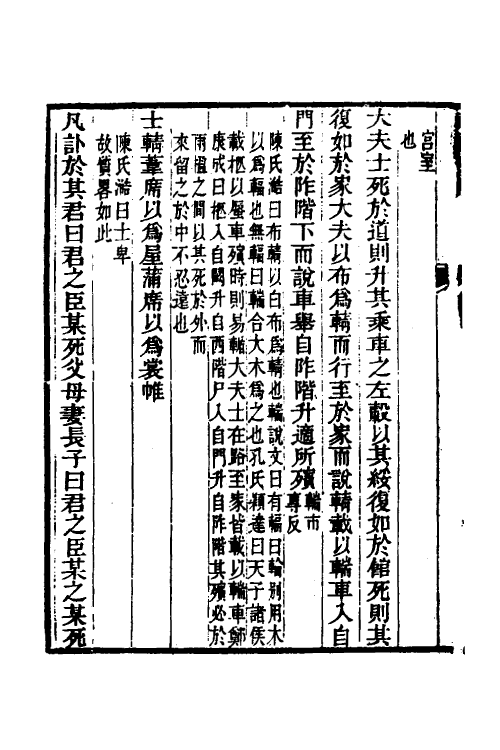 宫室
也
大夫士死於道則升其乘車之左轂以其綏復如於館死則其
復如於家大夫以布爲輤而行至於家而說輤載以輲車入自
門至於阼階下而說車舉自阼階升適所殯輲市
專反
陳氏澔曰布輤以白布爲輤也輲說文曰有輻曰輪別用木
以爲輻也無輻曰輲合大木爲之也孔氏穎達曰天子諸侯
載柩以蜃車殯時則易輴大夫士在路至家皆載以輲車鄭
康成曰柩入自闕升自西階尸入自門升自阼階其殯必於
兩楹之間以其死於外而
來留之於中不忍遠也
士輤葦席以爲屋蒲席以爲裳帷
陳氏澔曰士卑
故質畧如此
凡訃於其君曰君之臣某死父母妻長子曰君之臣某之某死